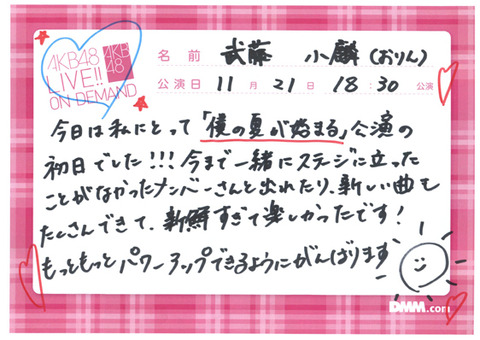 AKB48
LIVE!!
ON DEMAND
AKB
48
名前 武藤 小麟(おりん)
公演日 11月21日 18:30公演
今日は私にとって「僕の夏が始まる」公演の
初日でした!!!今まで一緒にステージに立った
ことがなかったメンバーさんと出れたり、新しい曲も
たくさんできて、新鮮すぎて楽しかったです!
もっともっとパワーアップできるようにがんばります
DMM.com